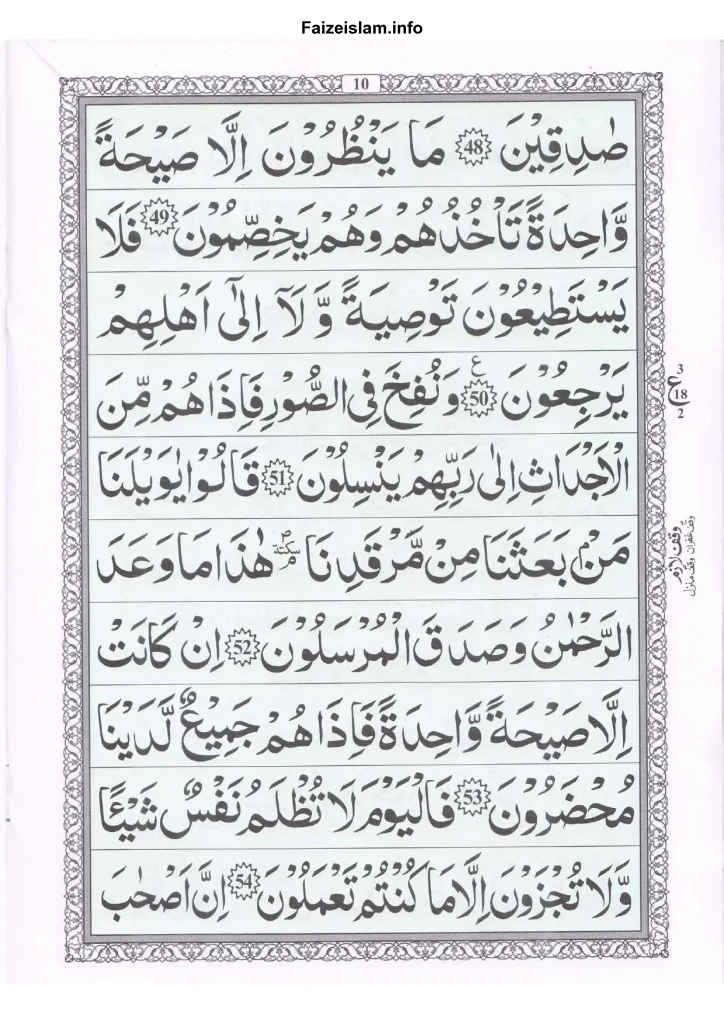 Faizeislam.info
10
صٰدِقِيْنَ 48 مَا يَنْظُرُوْنَ اِلَّا صَيْحَةً
وَّاحِدَةً تَاْخُذُهُمْ وَهُمْ يَخِصِّمُوْنَ 49 فَلَا
يَسْتَطِيْعُوْنَ تَوْصِيَةً وَّلَاۤ اِلٰۤى اَهْلِهِمْ
يَرْجِعُوْنَ 50 ع وَنُفِخَ فِى الصُّوْرِ فَاِذَا هُمْ مِّنَ
3
ع
18
2
الْاَجْدَاثِ اِلٰى رَبِّهِمْ يَنْسِلُوْنَ 51 قَالُوْا يٰوَيْلَنَا
مَنْۢ بَعَثَنَا مِنْ مَّرْقَدِنَا سكتة هٰذَا مَا وَعَدَ
وقف لازم
وقف غفران وقف منزل
الرَّحْمٰنُ وَصَدَقَ الْمُرْسَلُوْنَ 52 اِنْ كَانَتْ
اِلَّا صَيْحَةً وَّاحِدَةً فَاِذَا هُمْ جَمِيْعٌ لَّدَيْنَا
مُحْضَرُوْنَ 53 فَالْيَوْمَ لَا تُظْلَمُ نَفْسٌ شَيْـًٔا
وَّلَا تُجْزَوْنَ اِلَّا مَا كُنْتُمْ تَعْمَلُوْنَ 54 اِنَّ اَصْحٰبَ